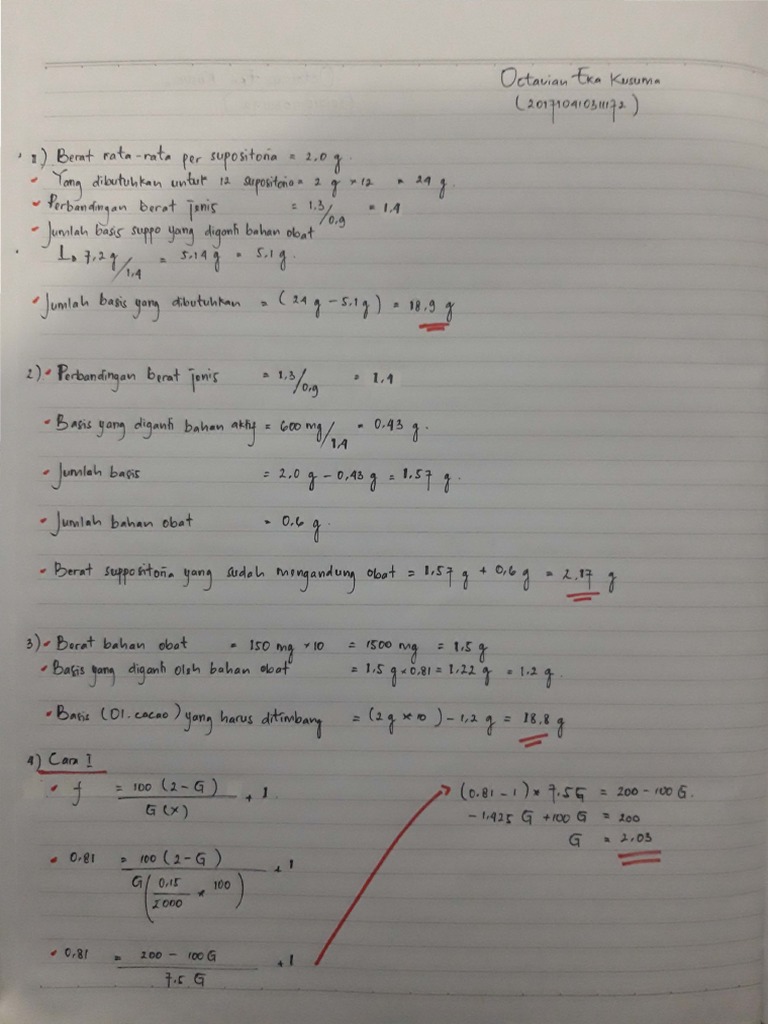 Octavian Eka Kusuma
(201710410311172)
1) Berat rata-rata per supositoria = 2.0 g.
Yang dibutuhkan untuk 12 supositoria = 2 g × 12 = 24 g.
Perbandingan berat jenis = 1.3/0.9 = 1.4
Jumlah basis suppo yang diganti bahan obat
7.2 g/1.4 = 5.14 g = 5.1 g.
Jumlah basis yang dibutuhkan = (24 g - 5.1 g) = 18.9 g
2) Perbandingan berat jenis = 1.3/0.9 = 1.4
Basis yang diganti bahan aktif = 600 mg/1.4 = 0.43 g.
Jumlah basis = 2.0 g - 0.43 g = 1.57 g.
Jumlah bahan obat = 0.6 g.
Berat suppositoria yang sudah mengandung obat = 1.57 g + 0.6 g = 2.17 g
3) Berat bahan obat = 150 mg × 10 = 1500 mg = 1.5 g
Basis yang diganti oleh bahan obat = 1.5 g × 0.81 = 1.22 g = 1.2 g.
Basis (Ol. cacao) yang harus ditimbang = (2 g × 10) - 1.2 g = 18.8 g
4) Cara I
f = 100 (2 - G) / G (x) + 1.
0.81 = 100 (2 - G) / G (0.15/2000 × 100) + 1
0.81 = 200 - 100 G / 7.5 G + 1
(0.81 - 1) × 7.5 G = 200 - 100 G.
- 1.425 G + 100 G = 200
G = 2.03